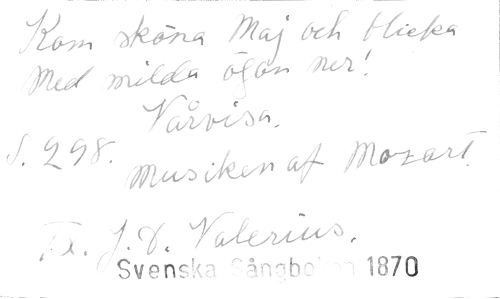 Kom sköna Maj och blicka
Med milda ögon ner!
Vårvisa.
S. 298.
Musiken af Mozart.
J. D. Valerius.
Svenska Sångboken 1870